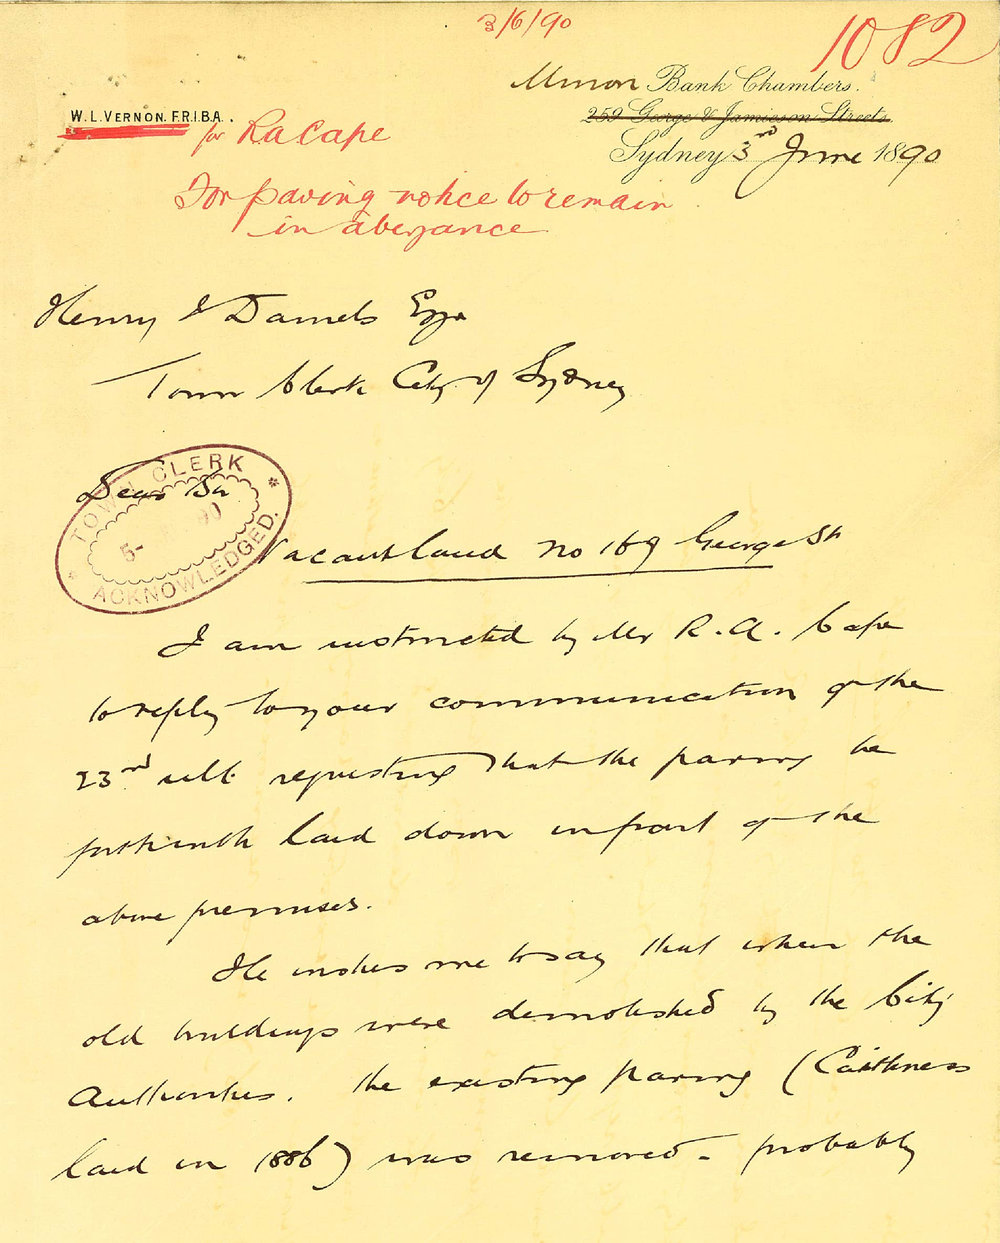 3/6/90
1082
Union Bank Chambers.
W. L. VERNON. F.R.I.B.A.
259 George & Jamieson Streets
for R A Cape
Sydney 3rd June 1890
For paving notice to remain
in abeyance
Henry J Daniels Esqr
Town Clerk City of Sydney
TOWN CLERK
5- 90
ACKNOWLEDGED.
Dear Sir
Vacant land no 169 George St
I am instructed by Mr R. A. Cape
to reply to your communication of the
23rd ult requesting that the paving be
forthwith laid down in front of the
above premises.
He wishes me to say that when the
old buildings were demolished by the City
Authorities. the existing paving (Caithness
laid in 1886) was removed - probably